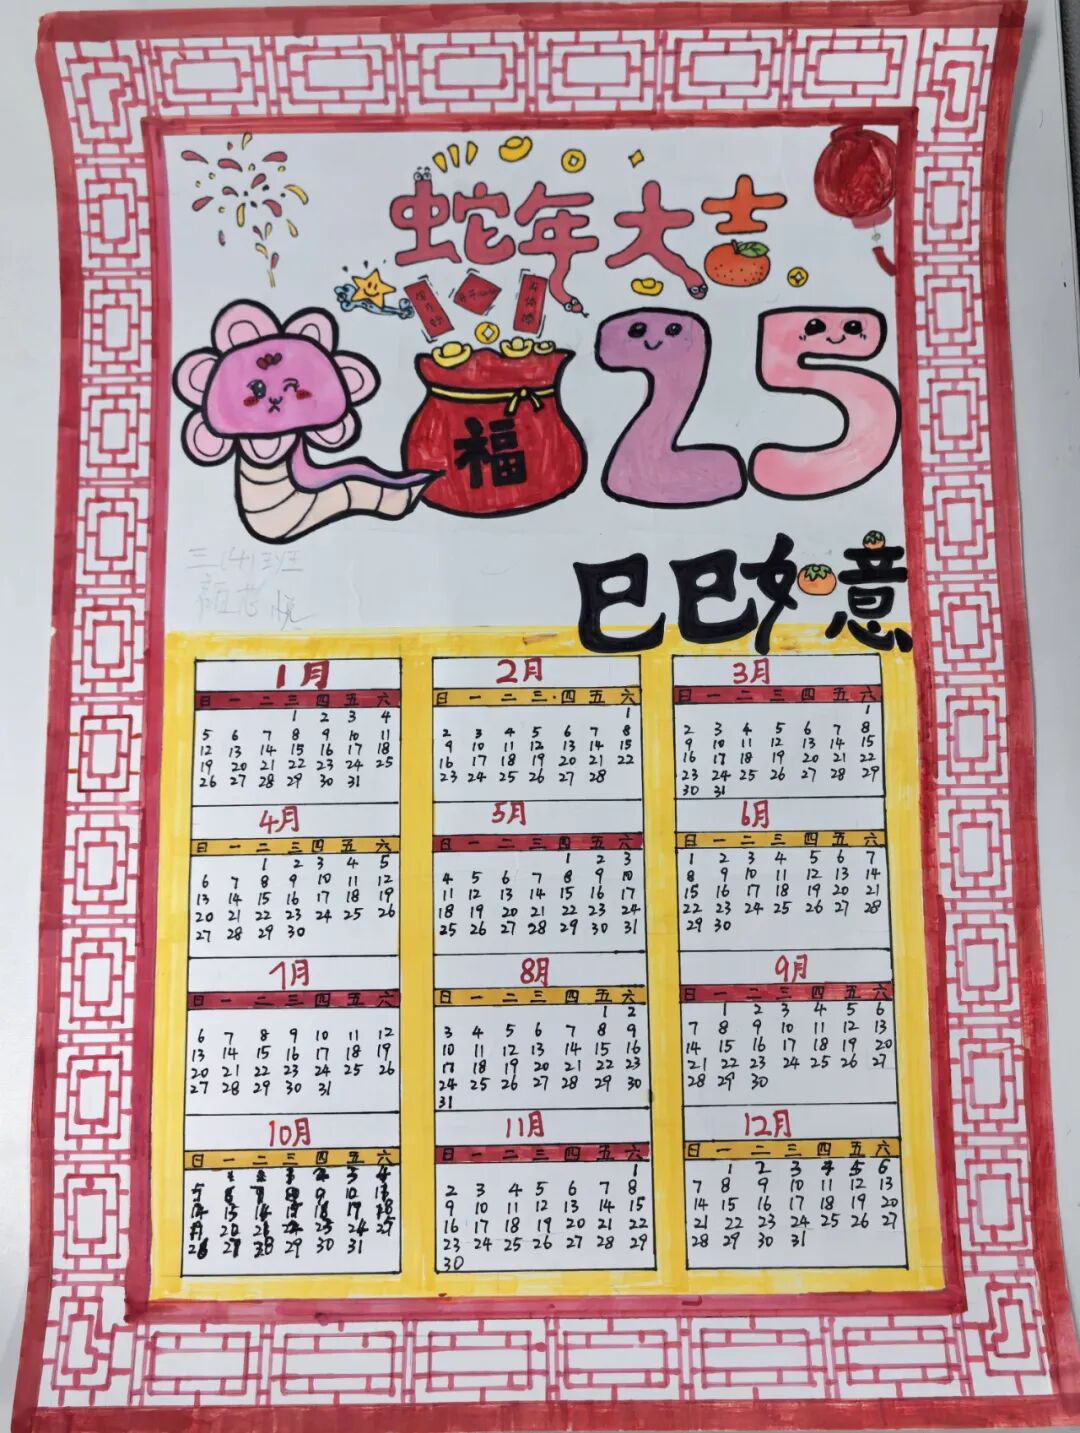 蛇年大吉
福
25
三(4)班
巳巳如意
1月
日 一 二 三 四 五 六
1 2 3 4
5 6 7 8 9 10 11
12 13 14 15 16 17 18
19 20 21 22 23 24 25
26 27 28 29 30 31
2月
日 一 二 三 四 五 六
1
2 3 4 5 6 7 8
9 10 11 12 13 14 15
16 17 18 19 20 21 22
23 24 25 26 27 28
3月
日 一 二 三 四 五 六
1
2 3 4 5 6 7 8
9 10 11 12 13 14 15
16 17 18 19 20 21 22
23 24 25 26 27 28 29
30 31
4月
日 一 二 三 四 五 六
1 2 3 4 5
6 7 8 9 10 11 12
13 14 15 16 17 18 19
20 21 22 23 24 25 26
27 28 29 30
5月
日 一 二 三 四 五 六
1 2 3
4 5 6 7 8 9 10
11 12 13 14 15 16 17
18 19 20 21 22 23 24
25 26 27 28 29 30 31
6月
日 一 二 三 四 五 六
1 2 3 4 5 6 7
8 9 10 11 12 13 14
15 16 17 18 19 20 21
22 23 24 25 26 27 28
29 30
7月
日 一 二 三 四 五 六
6 7 8 9 10 11 12
13 14 15 16 17 18 19
20 21 22 23 24 25 26
27 28 29 30 31
8月
日 一 二 三 四 五 六
1 2
3 4 5 6 7 8 9
10 11 12 13 14 15 16
17 18 19 20 21 22 23
24 25 26 27 28 29 30
31
9月
日 一 二 三 四 五 六
1 2 3 4 5 6
7 8 9 10 11 12 13
14 15 16 17 18 19 20
21 22 23 24 25 26 27
28 29 30
10月
日 一 二 三 四 五 六
29 30 31
11月
日 一 二 三 四 五 六
1
2 3 4 5 6 7 8
9 10 11 12 13 14 15
16 17 18 19 20 21 22
23 24 25 26 27 28 29
30
12月
日 一 二 三 四 五 六
1 2 3 4 5 6
7 8 9 10 11 12 13
14 15 16 17 18 19 20
21 22 23 24 25 26 27
28 29 30 31